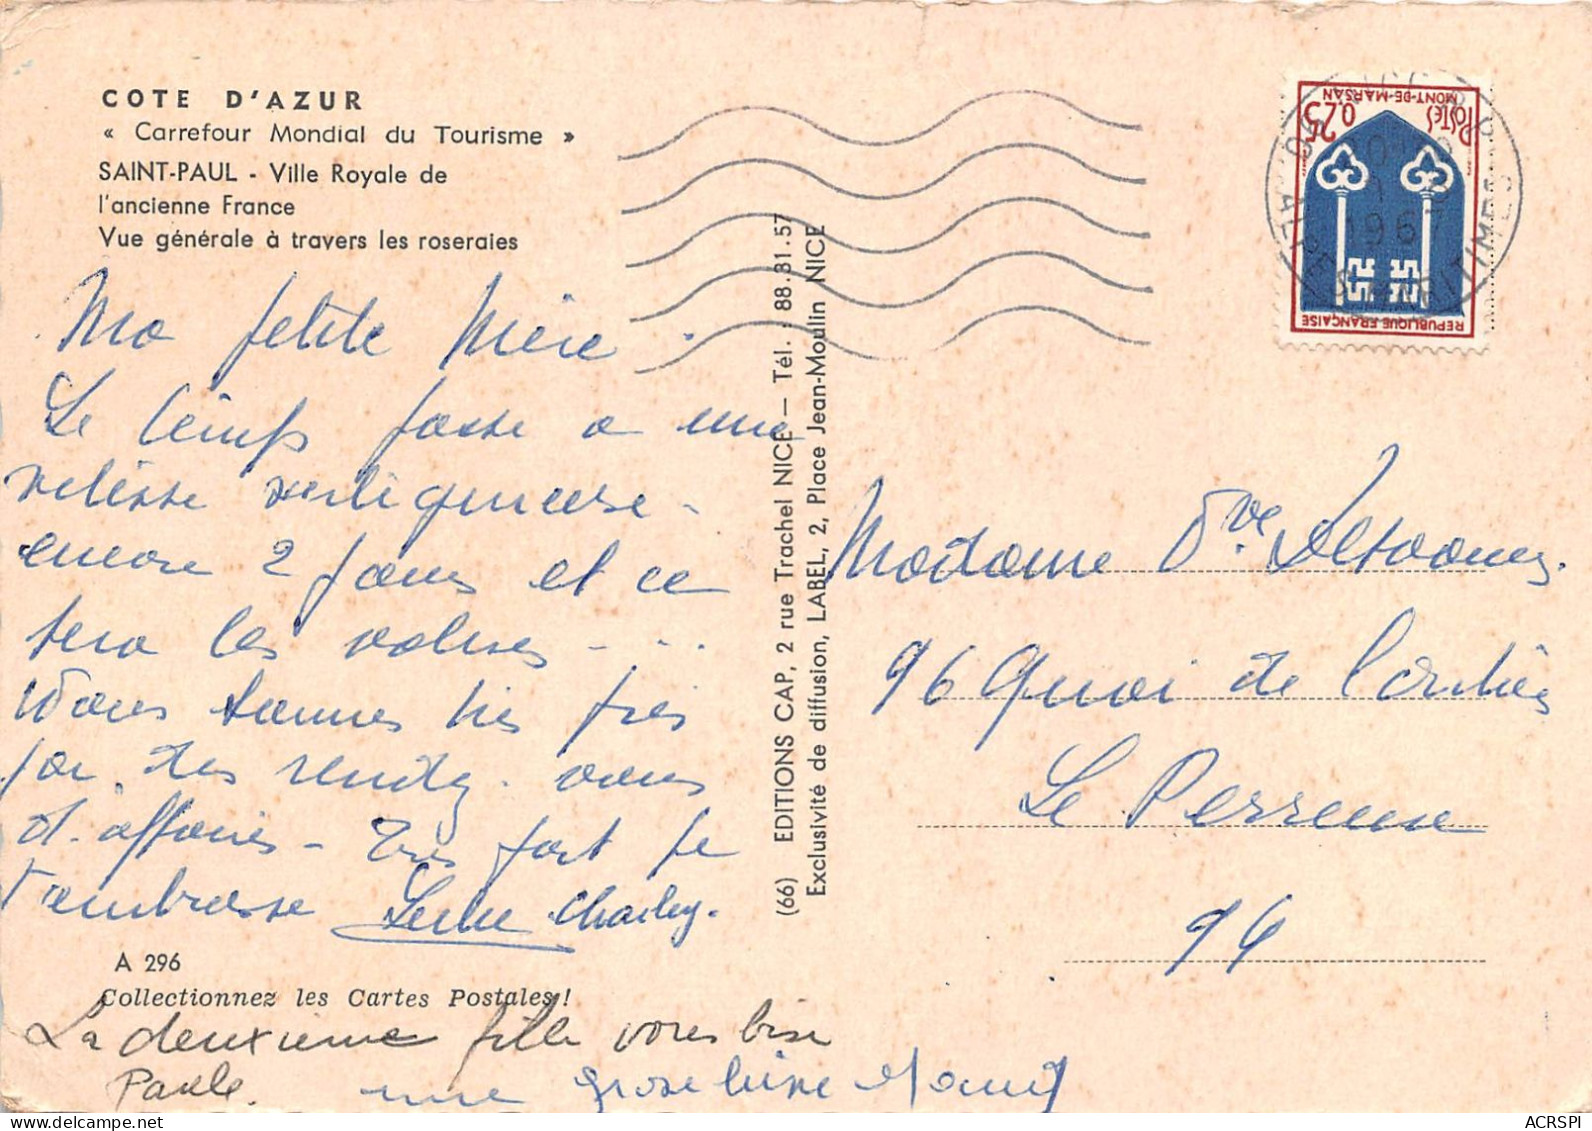 COTE D'AZUR
« Carrefour Mondial du Tourisme »
SAINT-PAUL - Ville Royale de
l'ancienne France
Vue générale à travers les roseraies
Ma petite Mère.
Le temps passe a une
vitesse vertigineuse -
encore 2 jours et ce
sera les valises - - . .
Nous sommes très pris
par des rendez-vous
d'affaires - Très fort je
t'embrasse Charley.
A 296
Collectionnez les Cartes Postales !
La deuxieme fille vous bise
Paule. une grosse bise
(66) EDITIONS CAP, 2 rue Trachel NICE — Tél. : 88.81.57
Exclusivité de diffusion, LABEL, 2, Place Jean-Moulin NICE
POSTES
0,25
MONT-DE-MARSAN
REPUBLIQUE FRANÇAISE
1967
ALPES MARITIMES
Madame Vve
96 Quai de l'Artois
Le Perreux
94
ACRSPI